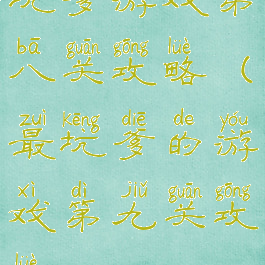 坑爹游戏第
bā guān gōng lüè
八关攻略（
zuì kēng diē de yóu
最坑爹的游
xì dì jiǔ guān gōng
戏第九关攻
lüè